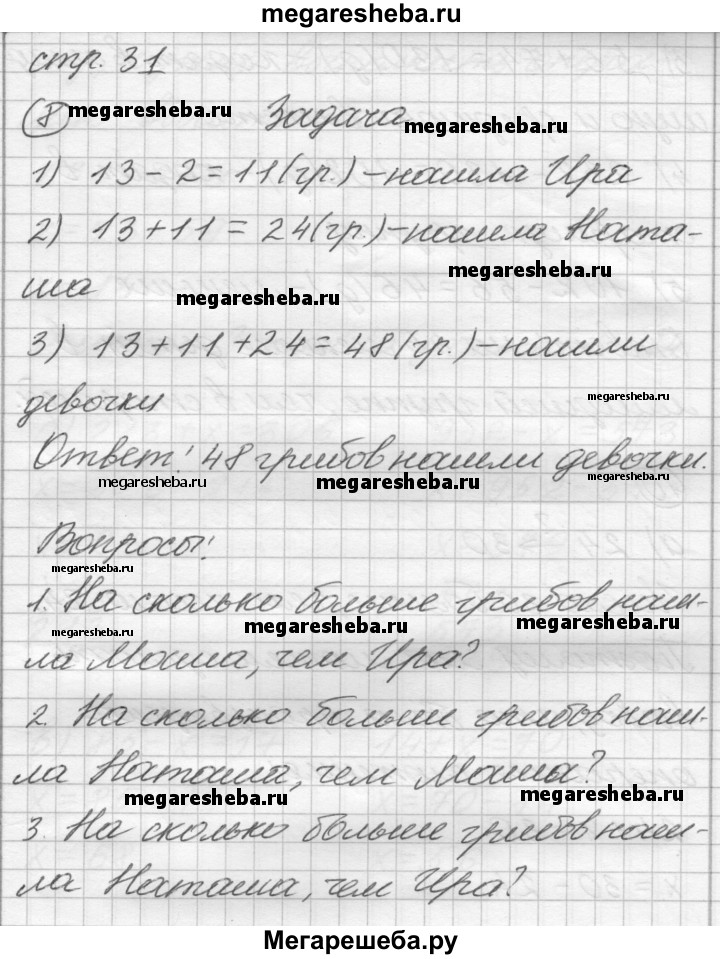 megaresheba.ru
стр. 31
8 megaresheba.ru Задача
megaresheba.ru
1) 13 - 2 = 11 (гр.) - нашла Ира
2) 13 + 11 = 24 (гр.) - нашла Ната-
megaresheba.ru
ша megaresheba.ru
3) 13 + 11 + 24 = 48 (гр.) - нашли
megaresheba.ru
девочки
Ответ: 48 грибов нашли девочки.
megaresheba.ru megaresheba.ru megaresheba.ru
Вопросы:
megaresheba.ru
1. На сколько больше грибов наш-
megaresheba.ru megaresheba.ru megaresheba.ru
ла Маша, чем Ира?
2. На сколько больше грибов наш-
ла Наташа, чем Маша?
megaresheba.ru megaresheba.ru
3. На сколько больше грибов наш-
ла Наташа, чем Ира?
Мегарешеба.ру